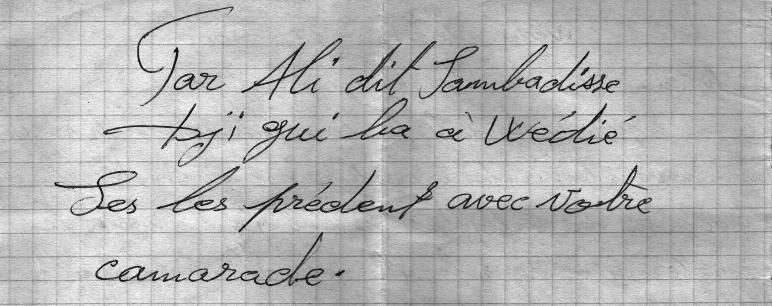 Par Ali dit Sambadisse
Dji qui ba à Wédié
Ses les prédent avec votre
camarade.